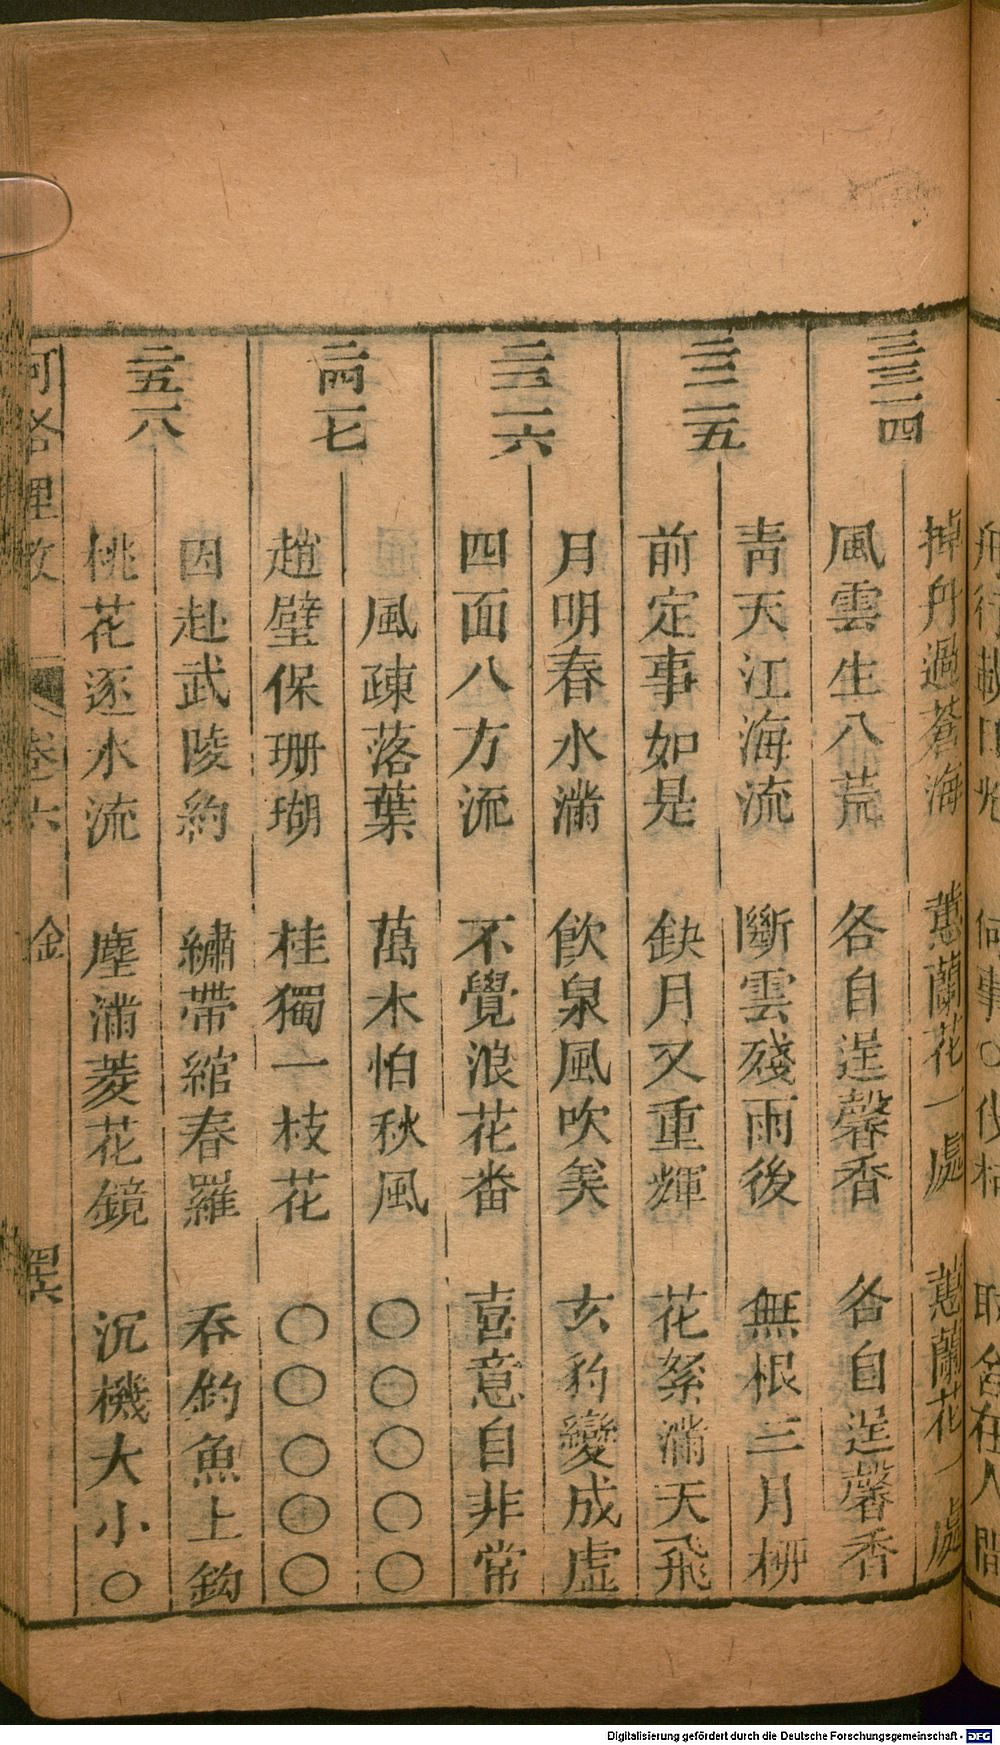 三三二四
掉舟過蒼海　蕙蘭花一處　蕙蘭花一處
風雲生八荒　各自逞馨香　各自逞馨香
三二二五
靑天江海流　斷雲殘雨後　無根三月柳
前定事如是　缺月又重輝　花絮滿天飛
二五二六
月明春水滿　飲泉風吹羑　玄豹變成虛
四面八方流　不覺浪花畨　喜意自非常
二四一七
風疎落葉　萬木怕秋風　〇〇〇〇〇
趙璧保珊瑚　桂獨一枝花　〇〇〇〇〇
二五一八
因赴武陵約　繡帶綰春羅　吞釣魚上鈎
桃花逐水流　塵滿菱花鏡　沉機大小〇
河洛理數　卷六　金
Digitalisierung gefördert durch die Deutsche Forschungsgemeinschaft - DFG